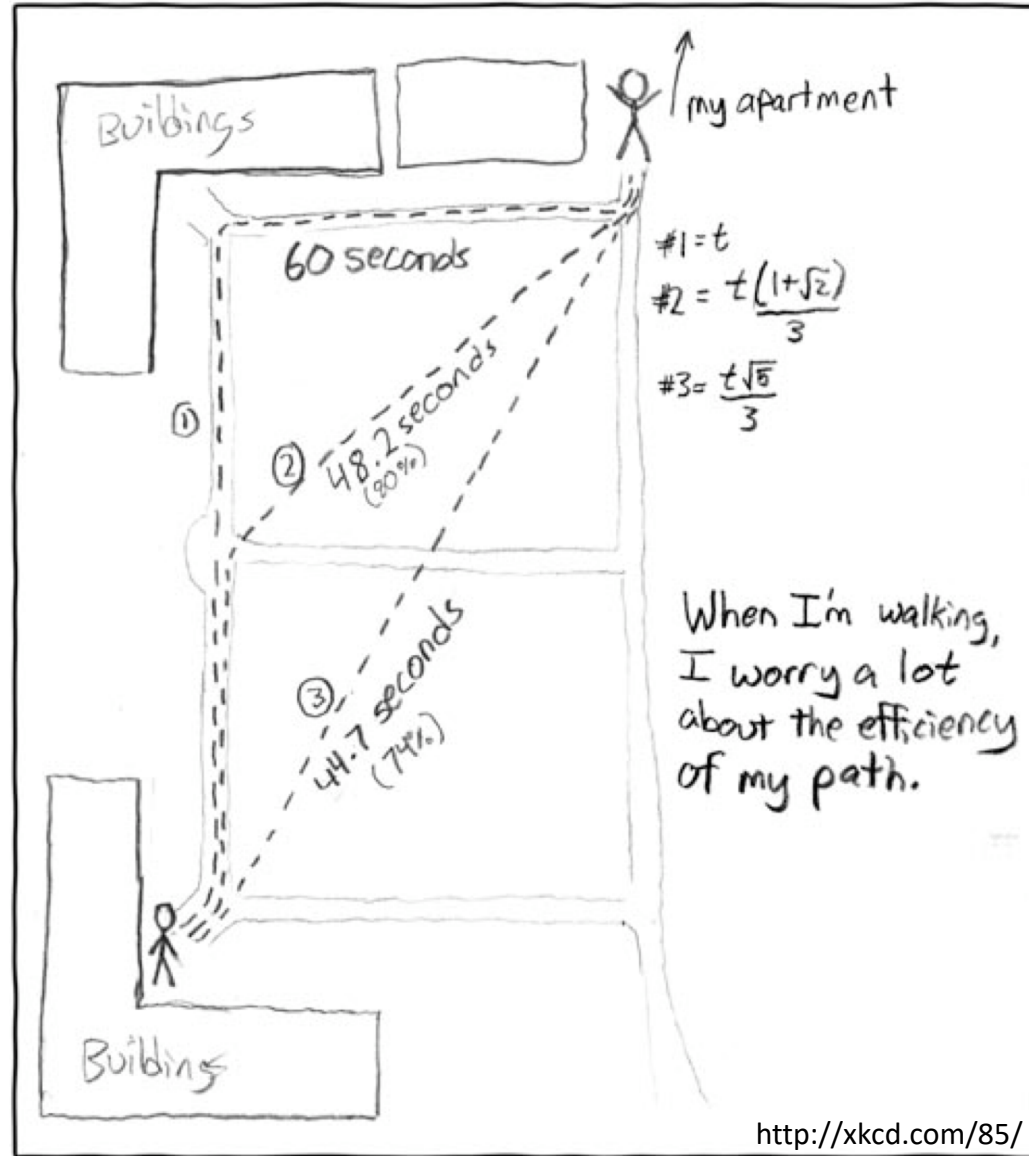 Buildings
my apartment
60 seconds
#1 = t
#2 = t(1+√2)
3
#3 = t√5
3
①
②
48.2 seconds
(80%)
③
44.7 seconds
(74%)
When I'm walking,
I worry a lot
about the efficiency
of my path.
Buildings
http://xkcd.com/85/